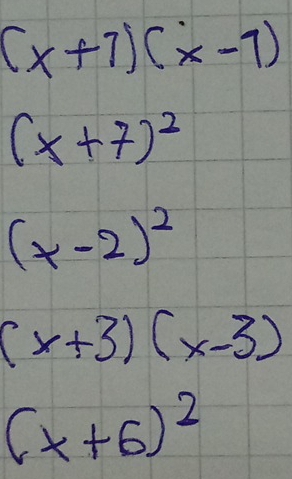 (x+7)(x-7)
(x+7)²
(x-2)²
(x+3)(x-3)
(x+6)²